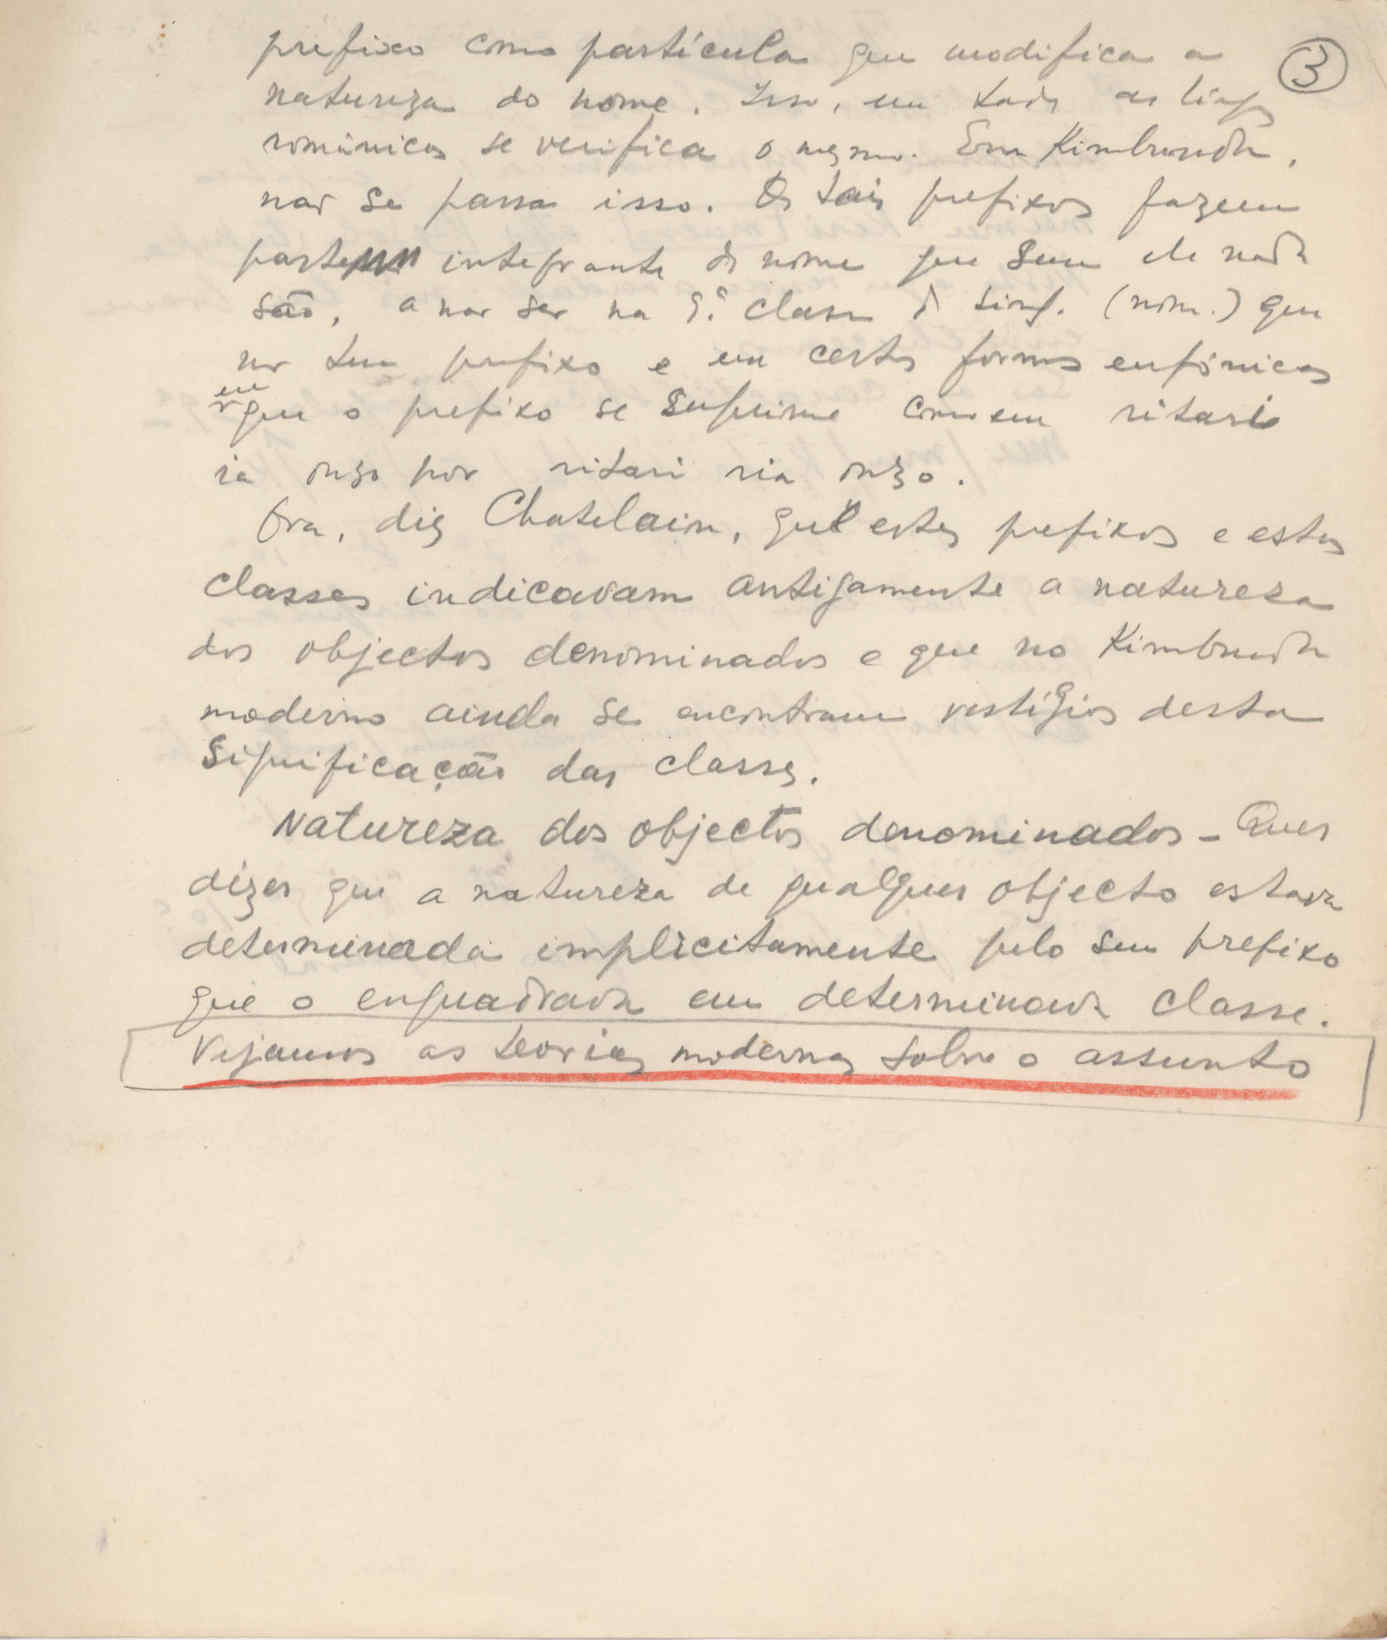 3
prefixo como partícula que modifica a
natureza do nome. Isso, em todas as lings
românicas se verifica o mesmo. Em Kimbundu,
não se passa isso. Os tais prefixos fazem
parte integrante do nome que sem ele nada
são, a não ser na 9.ª classe do sing. (nom.) que
não tem prefixo e em certas formas eufónicas
em que o prefixo se suprime como em ritari
ia onzo por ritari ria onzo.
Ora, diz Chatelain, que estes prefixos e estas
classes indicavam antigamente a natureza
dos objectos denominados e que no Kimbundu
moderno ainda se encontram vestígios desta
significação das classes.
Natureza dos objectos denominados - Quer
dizer que a natureza de qualquer objecto estava
determinada implicitamente pelo seu prefixo
que o enquadrava em determinada classe.
Vejamos as teorias modernas sobre o assunto